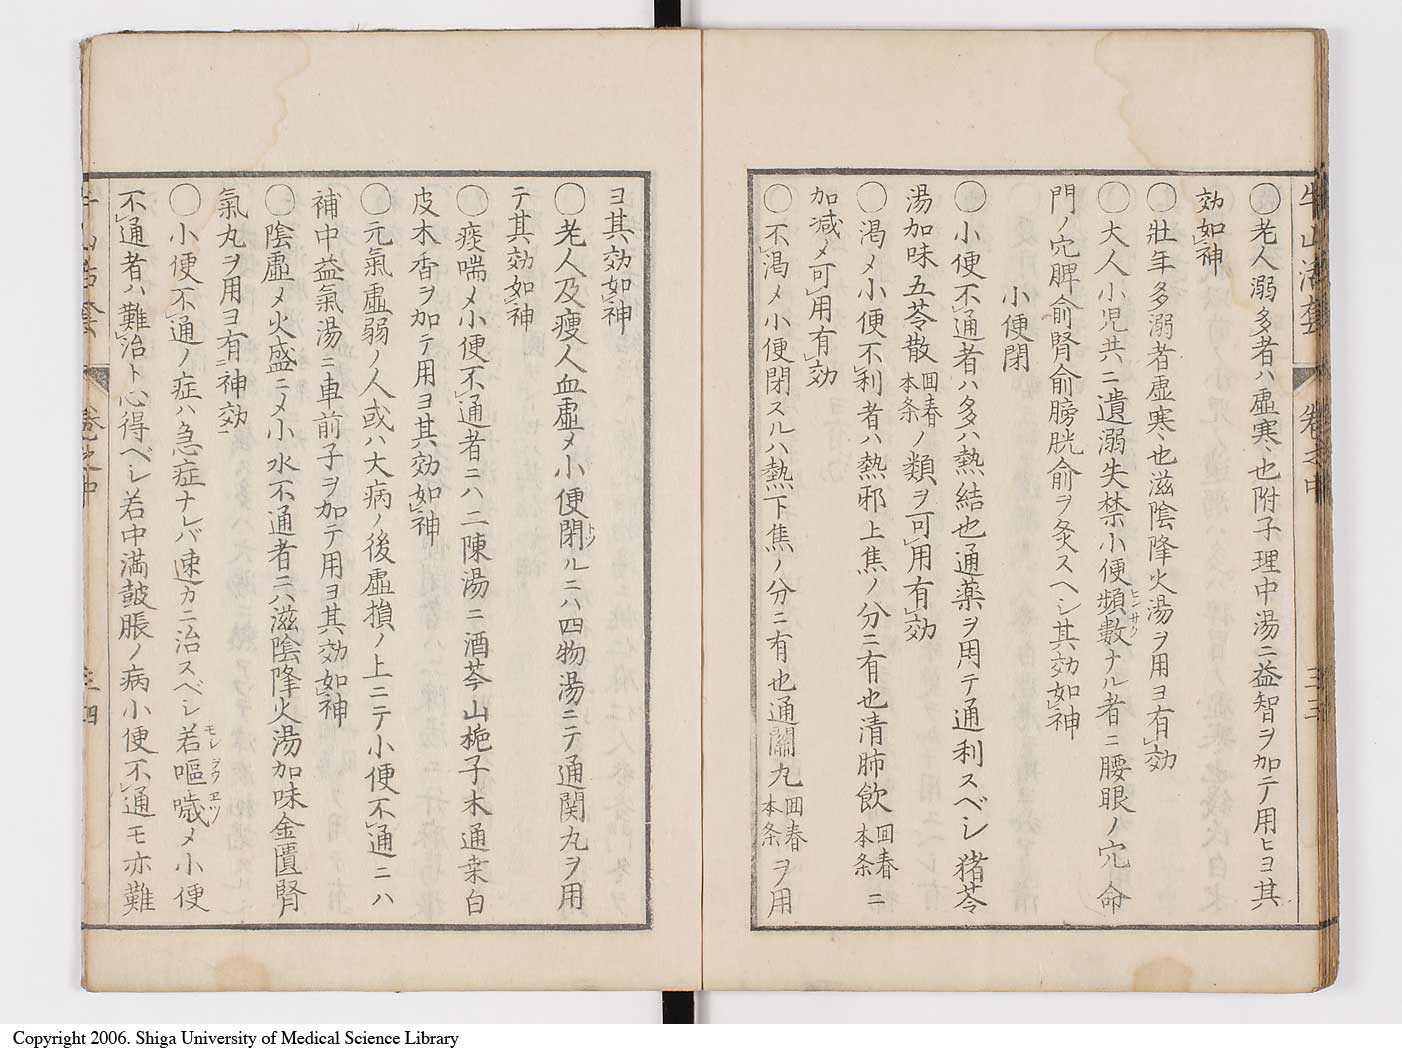 牛山活套 卷之中 三三
〇老人溺多者ハ虚寒也附子理中湯ニ益智ヲ加テ用ヒヨ其
効如神
〇壯年多溺者虚寒也滋陰降火湯ヲ用ヨ有効
〇大人小児共ニ遺溺失禁小便頻數ヒンサクナル者ニ腰眼ノ穴命
門ノ穴脾俞腎俞膀胱俞ヲ灸スヘシ其効如神
小便閉
〇小便不通者ハ多ハ熱結也通薬ヲ用テ通利スベシ猪苓
湯加味五苓散回春本条ノ類ヲ可用有効
〇渇乄小便不利者ハ熱邪上焦ノ分ニ有也清肺飲回春本条ニ
加减乄可用有効
〇不渇乄小便閉スルハ熱下焦ノ分ニ有也通關丸回春本条ヲ用
ヨ其効如神
〇老人及瘦人血虚乄小便閉トヅルニハ四物湯ニテ通関丸ヲ用
テ其効如神
〇痰喘乄小便不通者ニハ二陳湯ニ酒芩山梔子木通桒白
皮木香ヲ加テ用ヨ其効如神
〇元氣虚弱ノ人或ハ大病ノ後虚損ノ上ニテ小便不通ニハ
補中益氣湯ニ車前子ヲ加テ用ヨ其効如神
〇陰虚乄火盛ニ乄小水不通者ニハ滋陰降火湯加味金匱腎
氣丸ヲ用ヨ有神効
〇小便不通ノ症ハ急症ナレバ速カニ治スベシ若モシ嘔噦ヲウエツ乄小便
不通者ハ難治ト心得ベシ若中満皷脹ノ病小便不通モ亦難
牛山活套 卷之中 三四
Copyright 2006. Shiga University of Medical Science Library